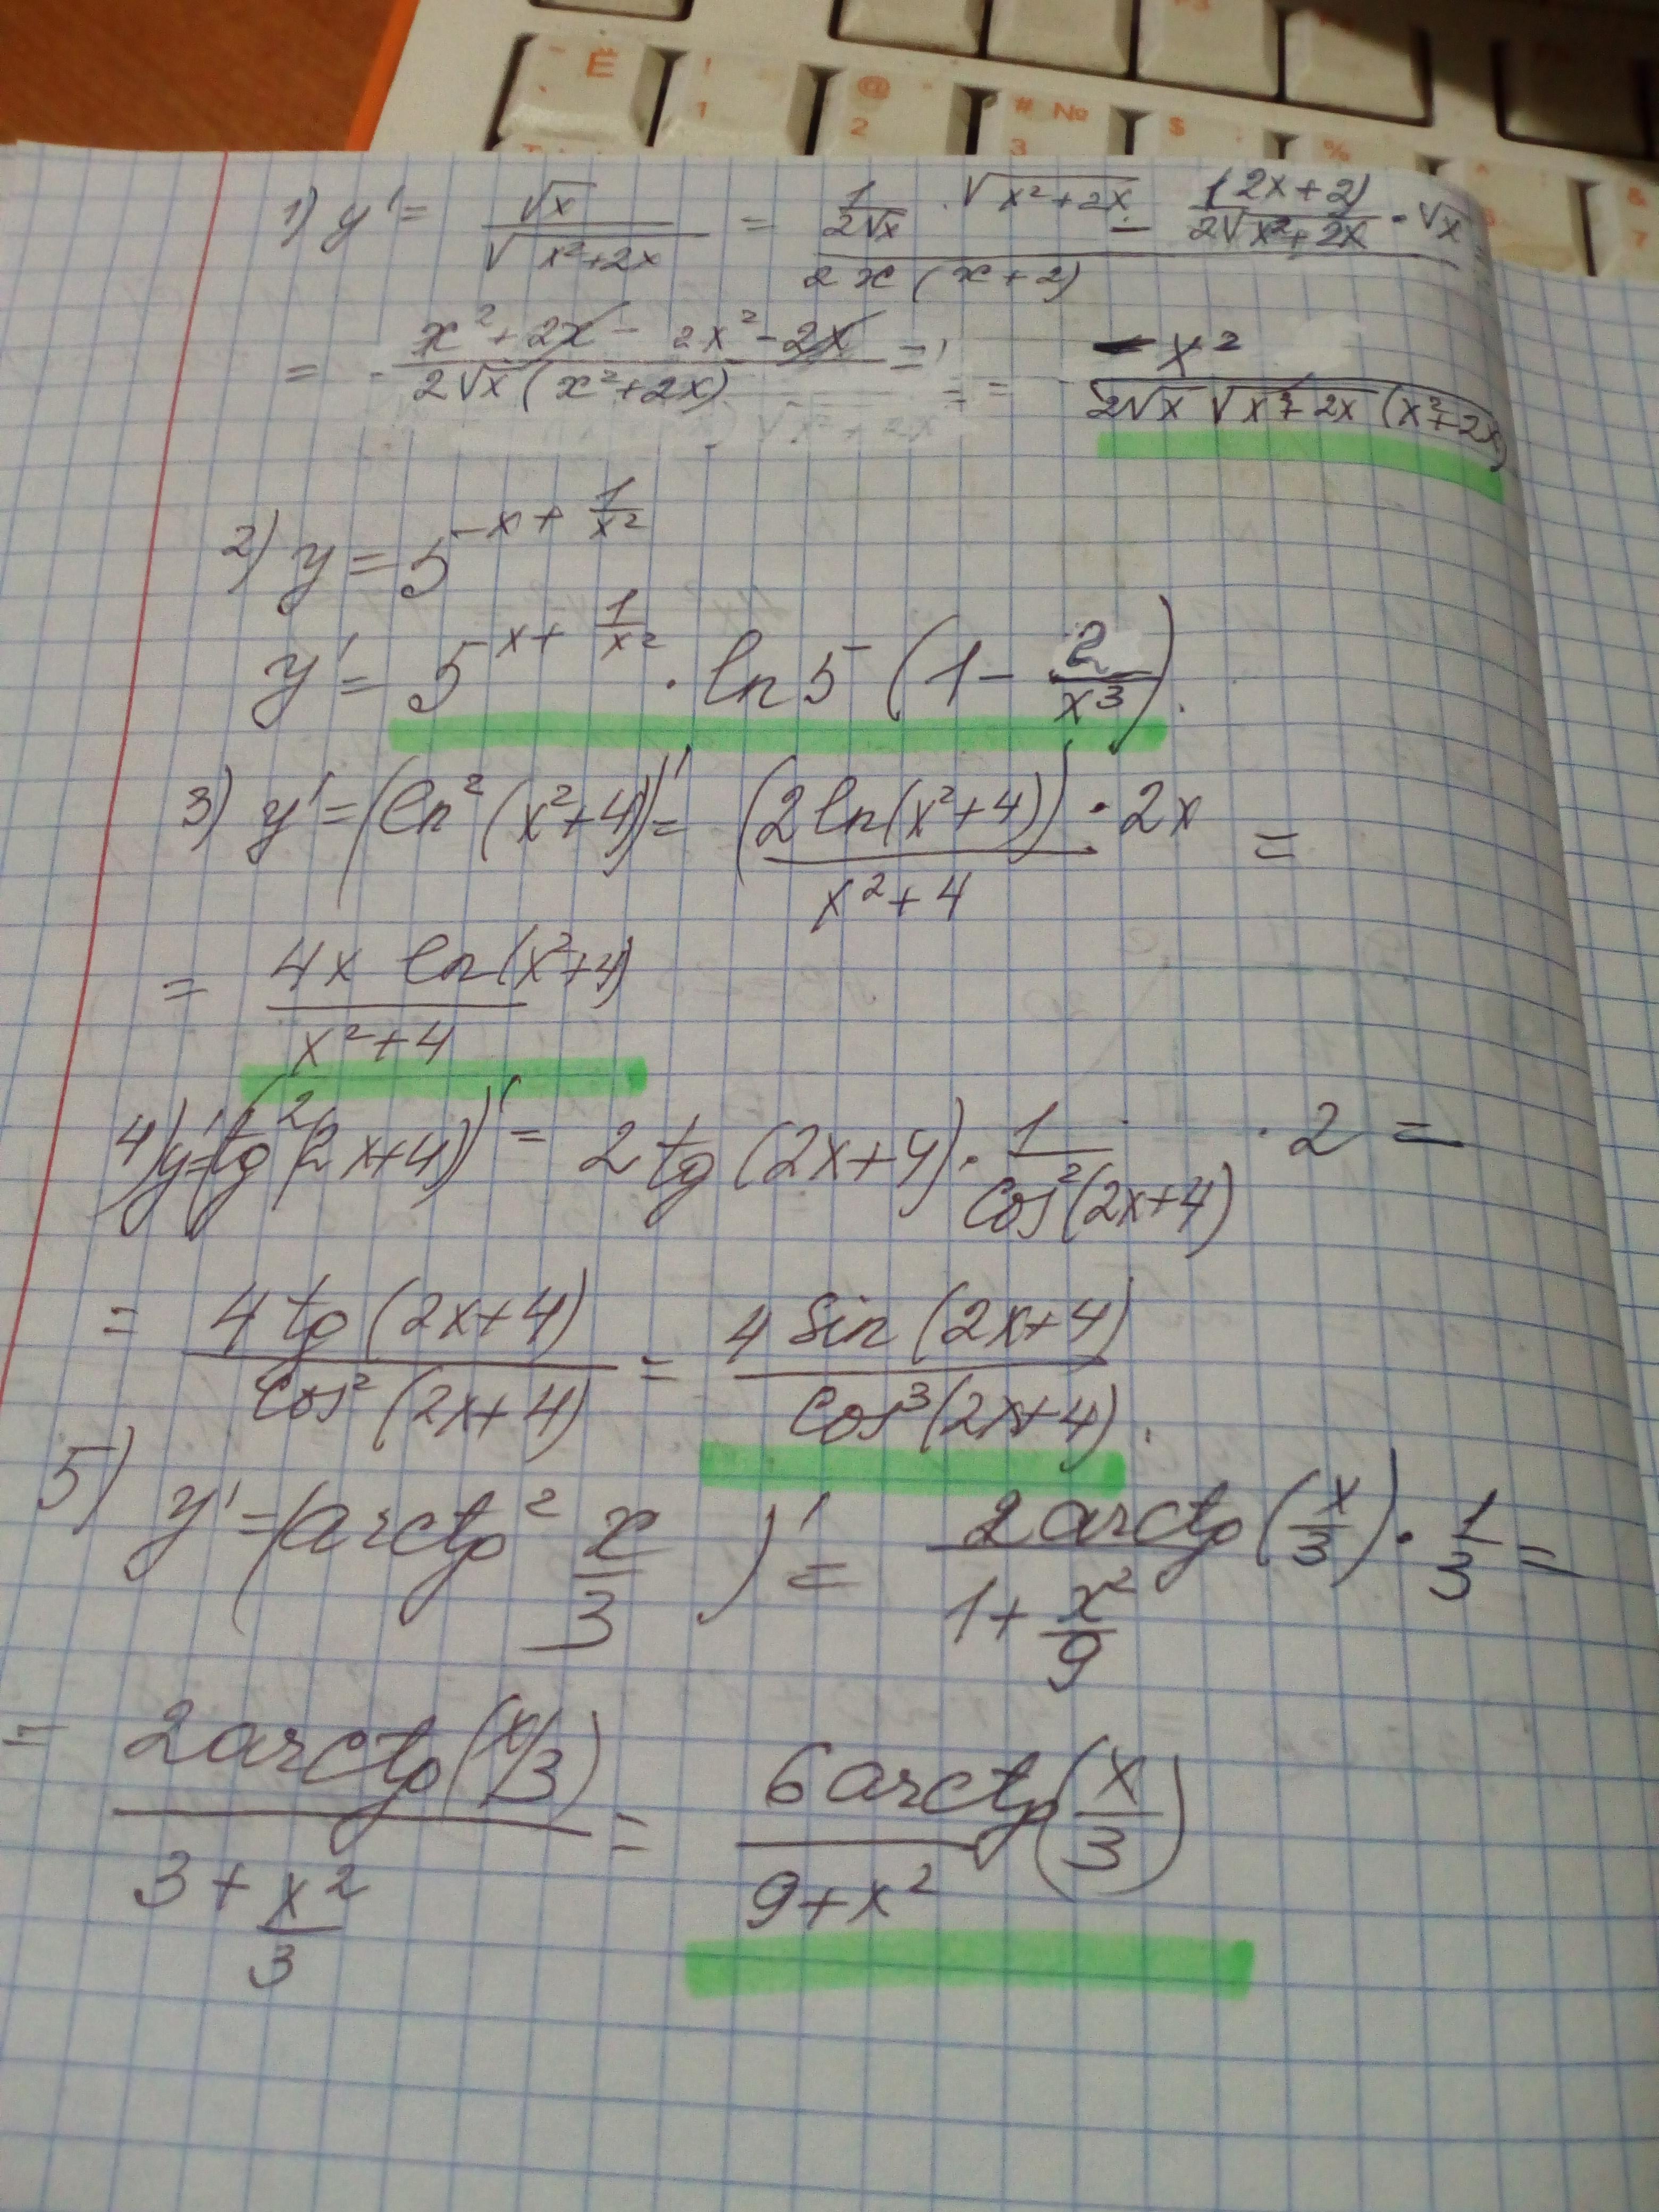 Ё ! 1 @ 2 # № 3 $ ; % & 7
1) y' = √x / √(x²+2x) = (1/(2√x) · √(x²+2x) − 1(2x+2)/(2√(x²+2x)) · √x) / (2x(x+2))
= (x²+2x − 2x²−2x) / (2√x(x²+2x)) = = −x² / (2√x √(x²+2x) (x²+2x))
2) y = 5^(−x + 1/x²)
y' = 5^(x + 1/x²) · ln5 (1 − 2/x³).
3) y' = (ln²(x²+4))' = (2ln(x²+4))/(x²+4) · 2x =
= 4x ln(x²+4) / (x²+4)
4) y' = (tg²(2x+4))' = 2tg(2x+4) · 1/cos²(2x+4) · 2 =
= 4tg(2x+4) / cos²(2x+4) = 4sin(2x+4) / cos³(2x+4).
5) y' = (arctg² x/3)' = 2arctg(x/3) / (1 + x²/9) · 1/3 =
= 2arctg(x/3) / (3 + x²/3) = 6arctg(x/3) / (9+x²)